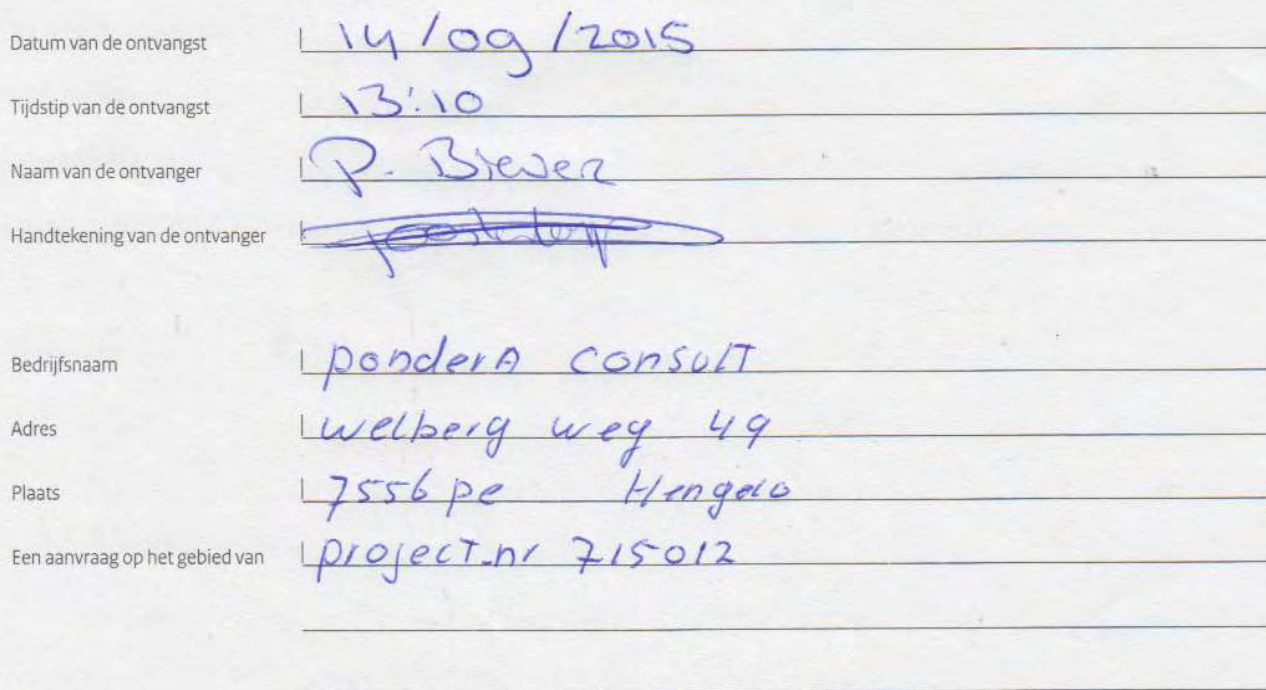 Datum van de ontvangst 14/09/2015
Tijdstip van de ontvangst 13:10
Naam van de ontvanger P. Biewer
Handtekening van de ontvanger
Bedrijfsnaam ponderA consulT
Adres welberg weg 49
Plaats 7556 pe Hengelo
Een aanvraag op het gebied van projecT.nr 715012